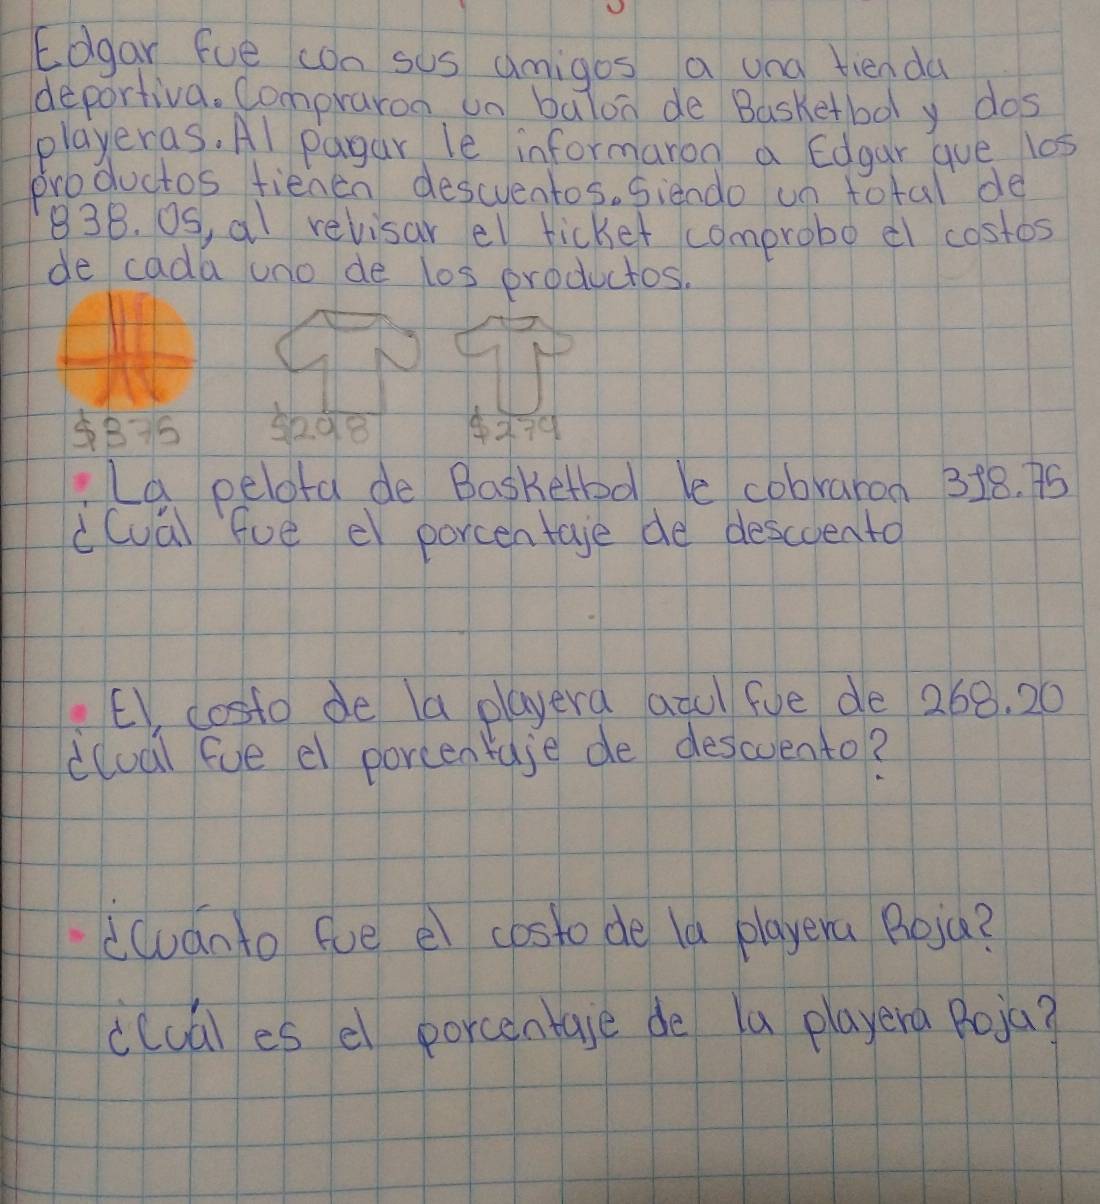 Edgar fue con sus amigos a una tienda
deportiva. Compraron un balón de Basketbol y dos
playeras. Al pagar le informaron a Edgar que los
productos tienen descuentos. Siendo un total de
838.05, al revisar el ticket comprobo el costos
de cada uno de los productos.
$375 $298 $279
La pelota de Basketbol le cobraron 318.75
¿Cuál fue el porcentaje de descuento
El costo de la playera azul fue de 268.20
¿Cuál fue el porcentaje de descuento?
¿Cuánto fue el costo de la playera Roja?
¿Cuál es el porcentaje de la playera Roja?